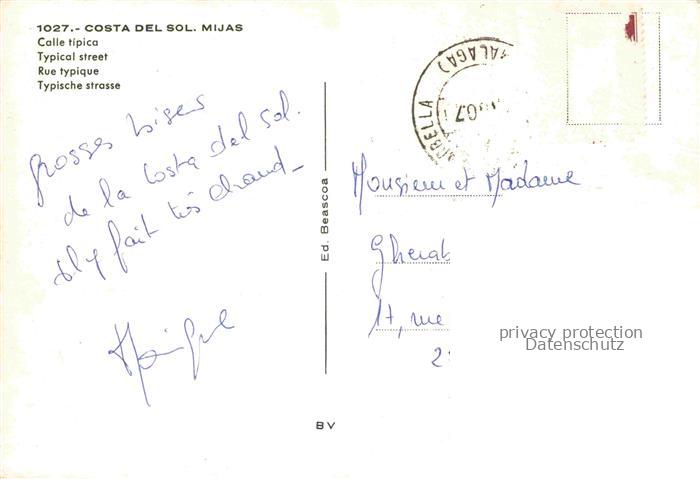 1027.- COSTA DEL SOL. MIJAS
Calle típica
Typical street
Rue typique
Typische strasse
grosses bises
de la Costa del Sol.
Il y fait très chaud_
Ed. Beascoa
BV
MARBELLA (MALAGA)
Monsieur et Madame
Gherab
17, rue
2
privacy protection
Datenschutz